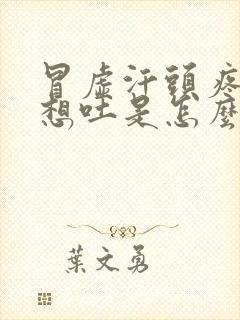 冒虛汗頭疼
想吐是怎麼
葉文勇